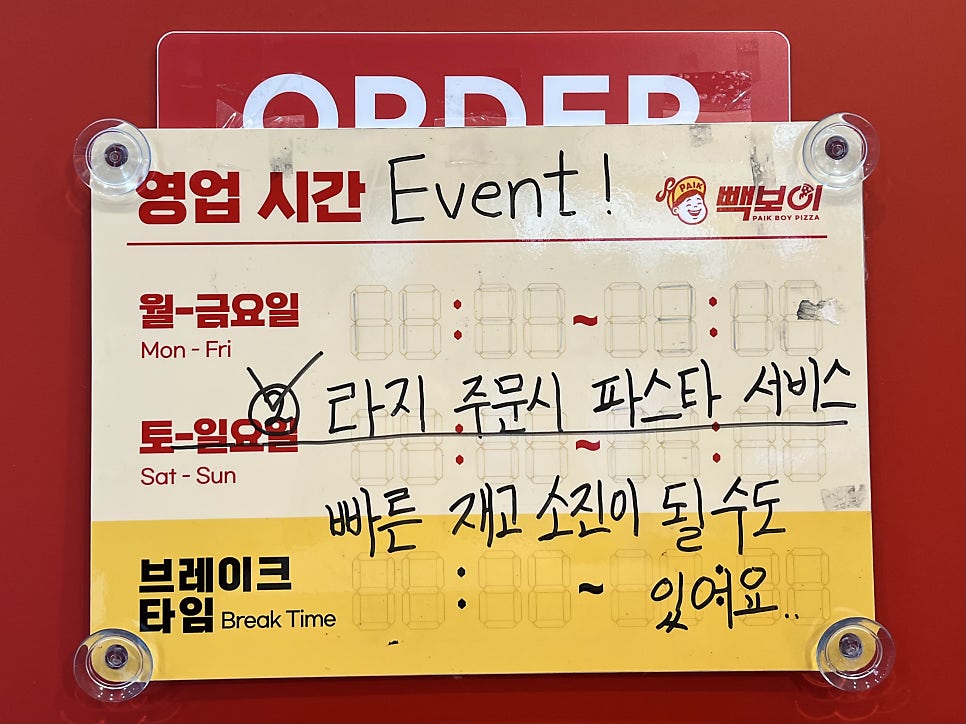 ORDER
영업 시간 Event!
PAIK
빽보이
PAIK BOY PIZZA
월-금요일
Mon - Fri
라지 주문시 파스타 서비스
토-일요일
Sat - Sun
빠른 재고 소진이 될 수도
있여요..
브레이크
타임 Break Time